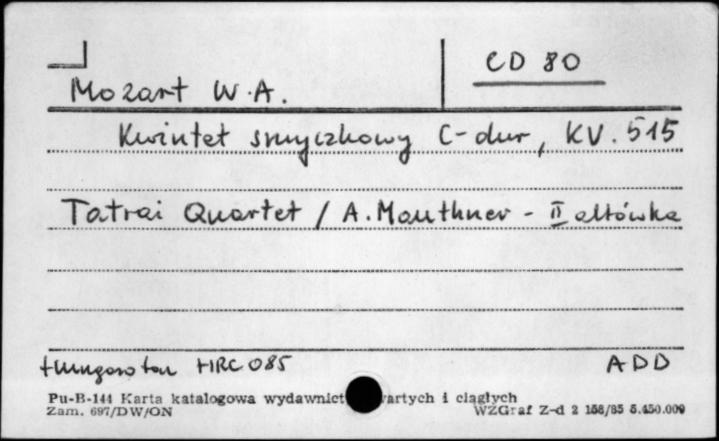 CD 80
Mozart W.A.
Kwintet smyczkowy C-dur, KV. 515
Tatrai Quartet / A. Mauthner - II altówka
Hungaroton HRC 085 ADD
Pu-B-144 Karta katalogowa wydawnict artych i ciągłych
Zam. 697/DW/ON WZGraf Z-d 2 158/85 5.450.000